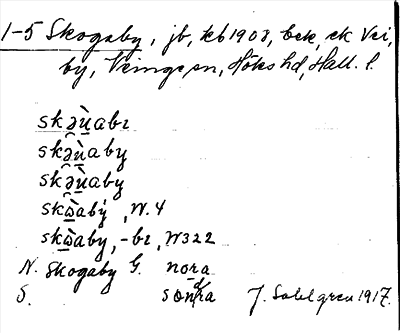 1-5 Skogaby, jb, kb 1908, bek, ek Vei,
by, Veinge sn, Höks hd, Hall. l.
skə̯ùabɪ
skə̯ùaby
skə̯ùaby
skɷ̀aby, W. 4
skɷ̀aby, -bɪ, W322
N. Skogaby G. nora
S. sönra J. Sahlgren 1917.